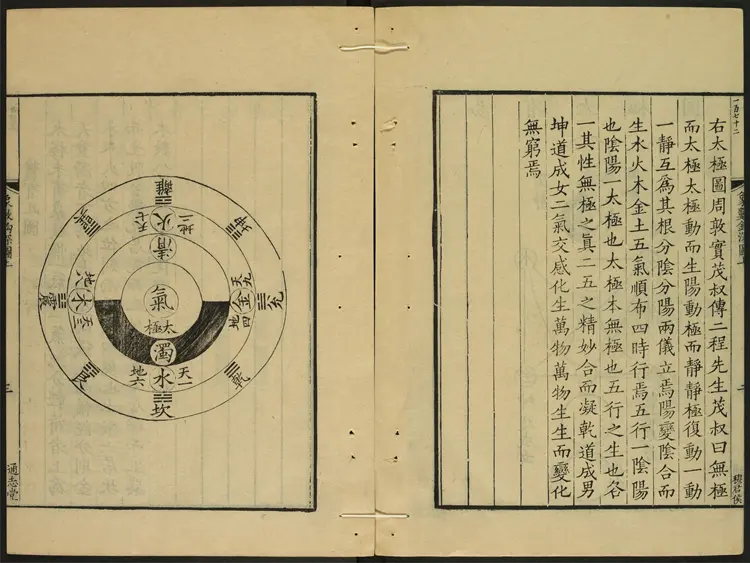 一百七十二
右太極圖周敦實茂叔傳二程先生茂叔曰無極
而太極太極動而生陽動極而靜靜極復動一動
一靜互爲其根分陰分陽兩儀立焉陽變陰合而
生水火木金土五氣順布四時行焉五行一陰陽
也陰陽一太極也太極本無極也五行之生也各
一其性無極之眞二五之精妙合而凝乾道成男
坤道成女二氣交感化生萬物萬物生生而變化
無窮焉
離
地二
火
天七
清
坤
巽
天九
金
地四
兌
氣
太極
地八
木
天三
震
濁
天一
水
地六
乾
艮
坎
三
通志堂